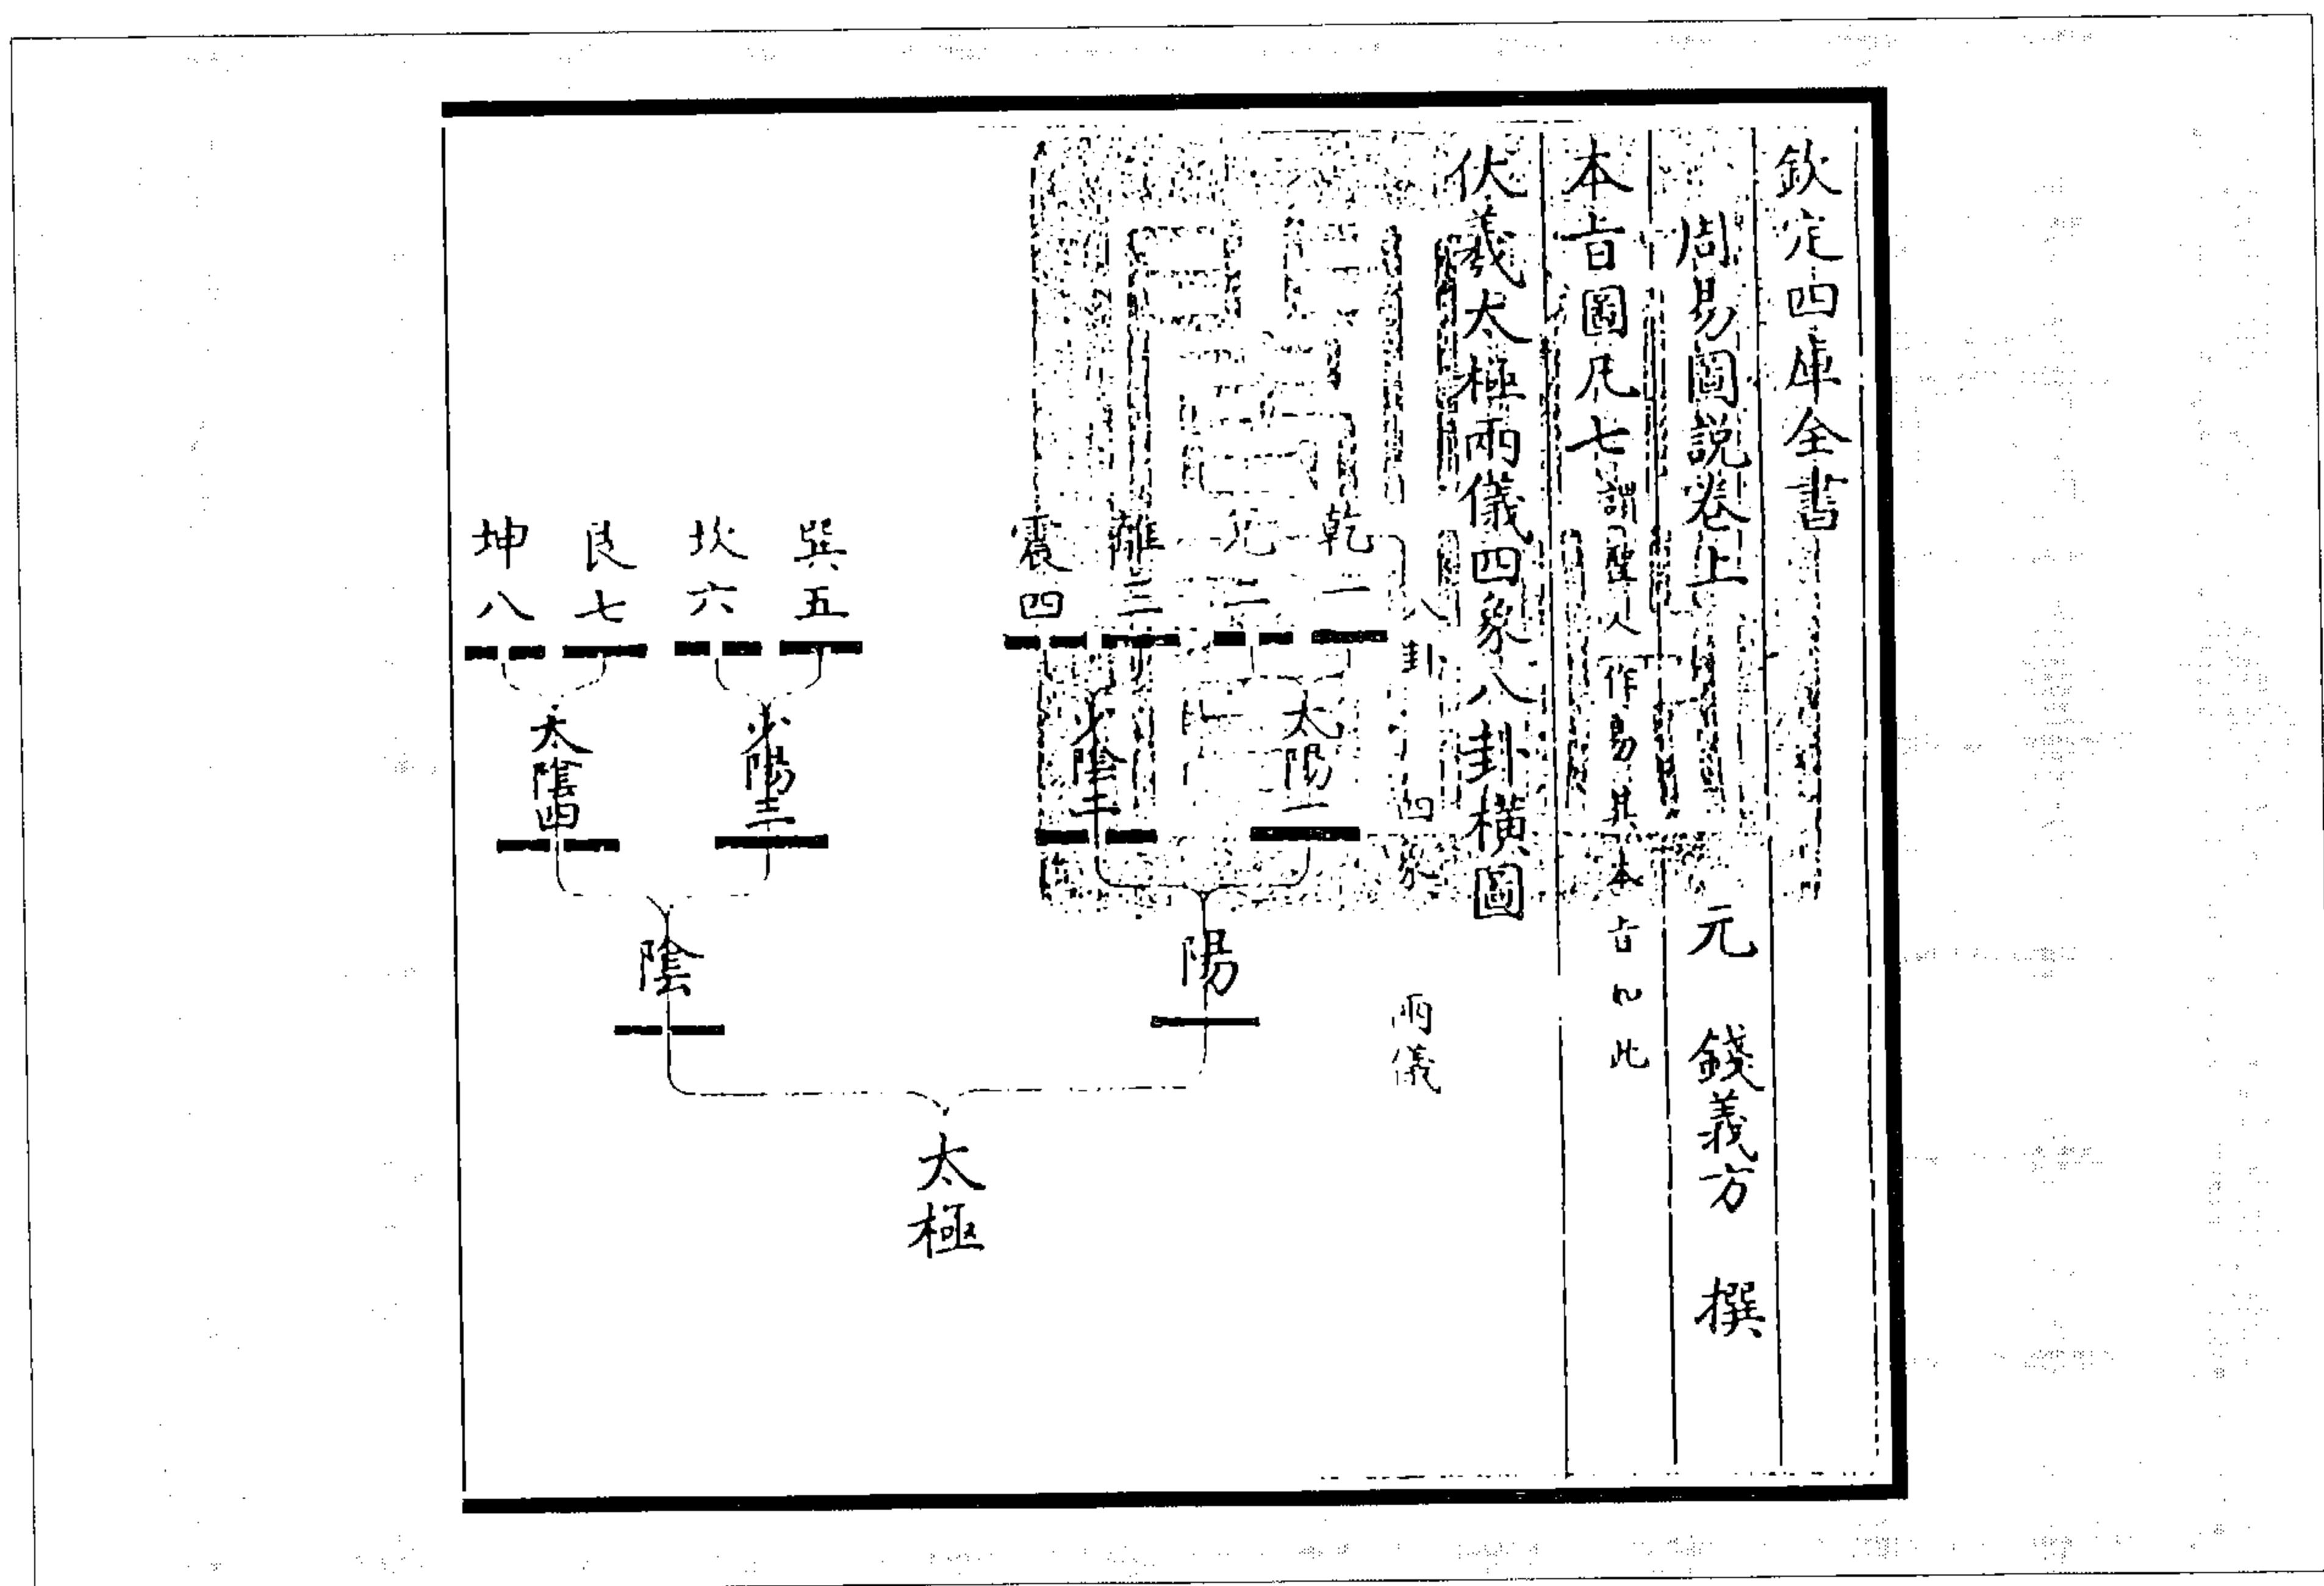 欽定四庫全書
周易圖說卷上
元 錢義方 撰
本旨圖凡七 謂聖人作易其本旨如此
伏羲太極兩儀四象八卦橫圖
八卦
四象
兩儀
乾一
兌二
離三
震四
巽五
坎六
艮七
坤八
太陽一
少陰二
少陽三
太陰四
陽
陰
太極